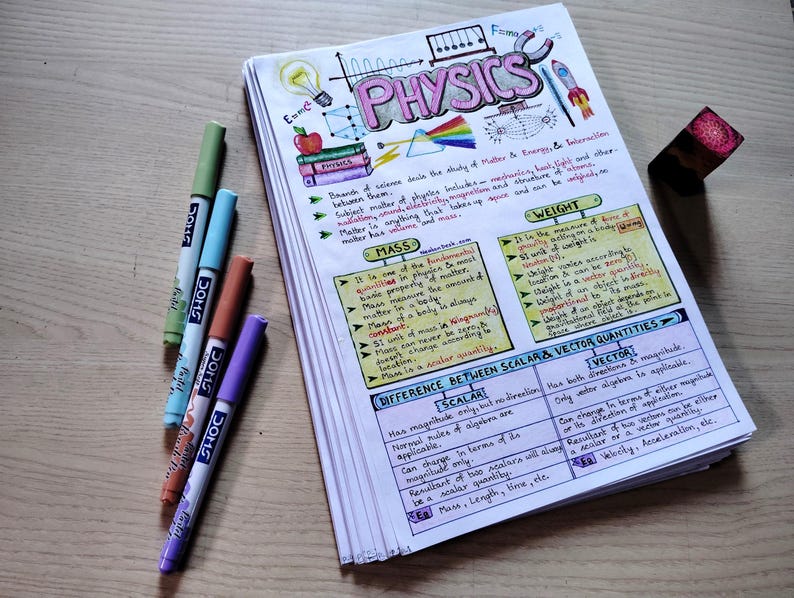 F=ma
PHYSICS
E=mc²
PHYSICS
Branch of science deals the study of Matter & Energy, & Interaction
between them.
Subject matter of physics includes - mechanics, heat, light and other-
radiation, sound, electricity, magnetism and structure of atoms.
Matter is anything that takes up space and can be weighed, so
matter has volume and mass.
MASS
NewtonDesk.com
It is one of the fundamental
quantities in physics & most
basic property of matter.
Mass measure the amount of
matter in a body.
Mass of a body is always
constant.
SI unit of mass is Kilogram(Kg)
Mass can never be zero, &
doesn't change according to
location.
Mass is a scalar quantity.
WEIGHT
It is the measure of force of
gravity acting on a body. W=mg
SI unit of weight is
Newton(N).
Weight varies according to
location & can be zero(0)
Weight is a vector quantity.
Weight of an object is directly
proportional to its mass.
Weight of an object depends on
gravitational field at the point in
space where object is.
DIFFERENCE BETWEEN SCALAR & VECTOR QUANTITIES
SCALAR
Has magnitude only, but no direction
Normal rules of algebra are
applicable.
Can change in terms of its
magnitude only.
Resultant of two scalars will always
be a scalar quantity.
Eg Mass, Length, time, etc.
VECTOR
Has both directions & magnitude.
Only vector algebra is applicable.
Can change in terms of either magnitude
or its direction of application.
Resultant of two vectors can be either
a scalar or a vector quantity.
Eg Velocity, Acceleration, etc.
DOMS
Pastel
DOMS
Pastel
DOMS
Brush Pen
DOMS
Pastel